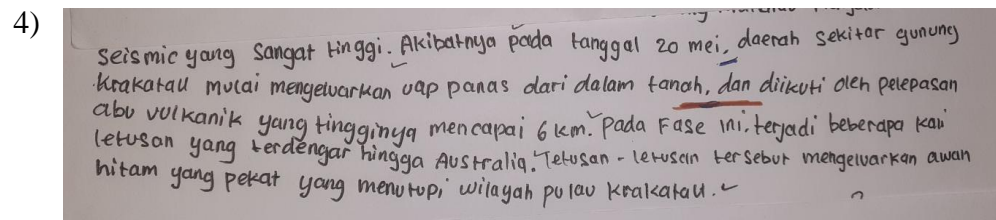 4)
seismic yang sangat tinggi. Akibatnya pada tanggal 20 mei, daerah sekitar gunung
Krakatau mulai mengeluarkan uap panas dari dalam tanah, dan diikuti oleh pelepasan
abu vulkanik yang tingginya mencapai 6 km. Pada Fase ini, terjadi beberapa kali
letusan yang terdengar hingga Australia. Letusan - letusan tersebut mengeluarkan awan
hitam yang pekat yang menutupi wilayah pulau Krakatau.